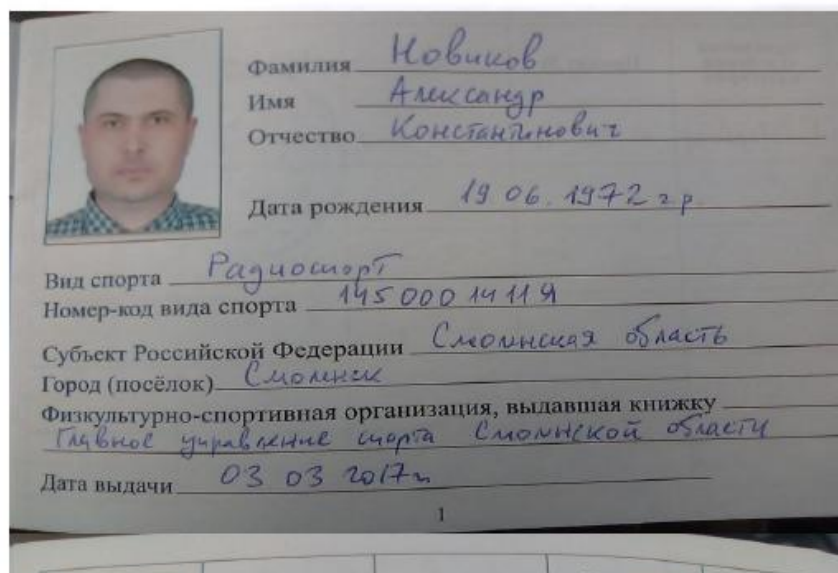 Фамилия Новиков
Имя Александр
Отчество Константинович
Дата рождения 19 06. 1972 г.р.
Вид спорта Радиоспорт
Номер-код вида спорта 145 000 14 11 Я
Субъект Российской Федерации Смоленская область
Город (посёлок) Смоленск
Физкультурно-спортивная организация, выдавшая книжку
Главное управление спорта Смоленской области
Дата выдачи 03 03 2017г
1